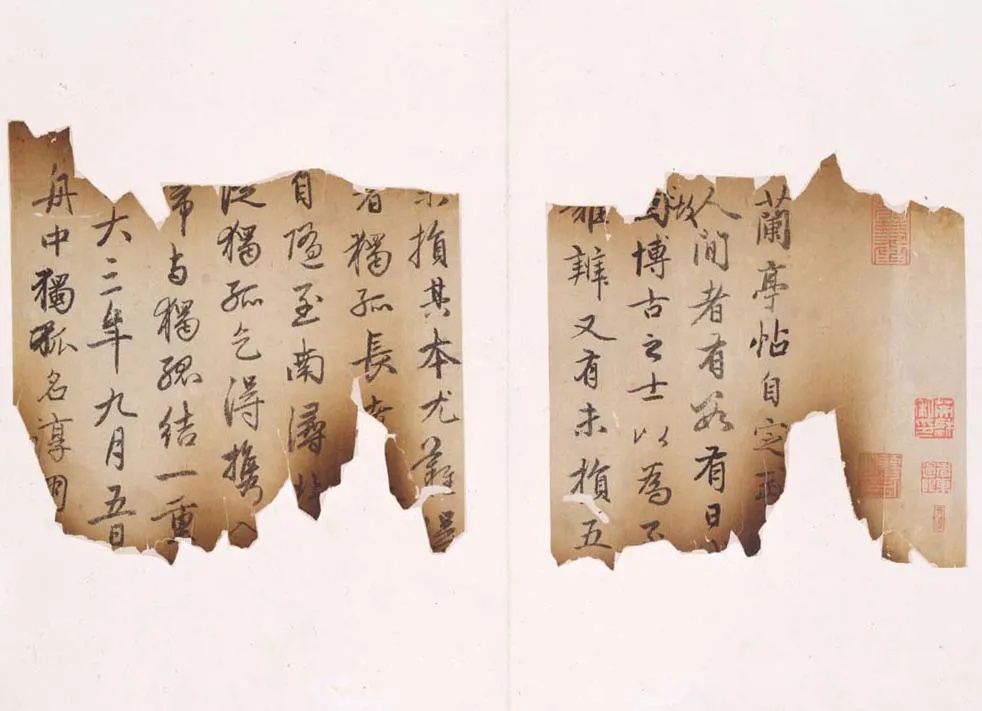 蘭亭帖自定武
人間者有數有日
博古之士以為
難辨又有未損五
未損其本尤難得
者獨孤長老
自隨至南潯北
從獨孤乞得攜入
与獨孤結一重
大三年九月五日
舟中獨孤名淳朋